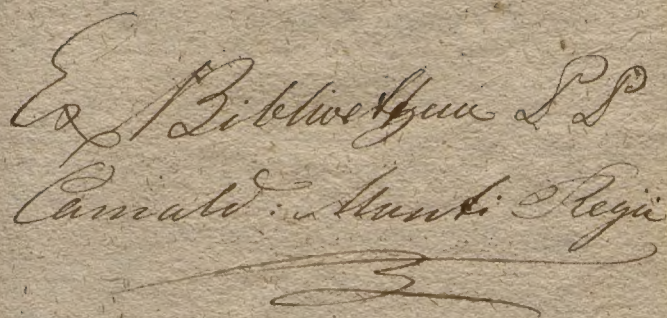 Ex Bibliotheca P P
Camald: Monti Regii